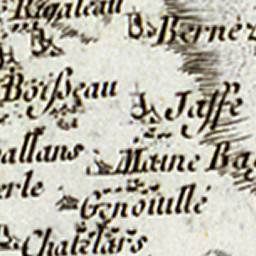 Rigaleau
Berne
Boisseau
Jasse
allans
Maine Ba
erle
Genouillé
Chatelars